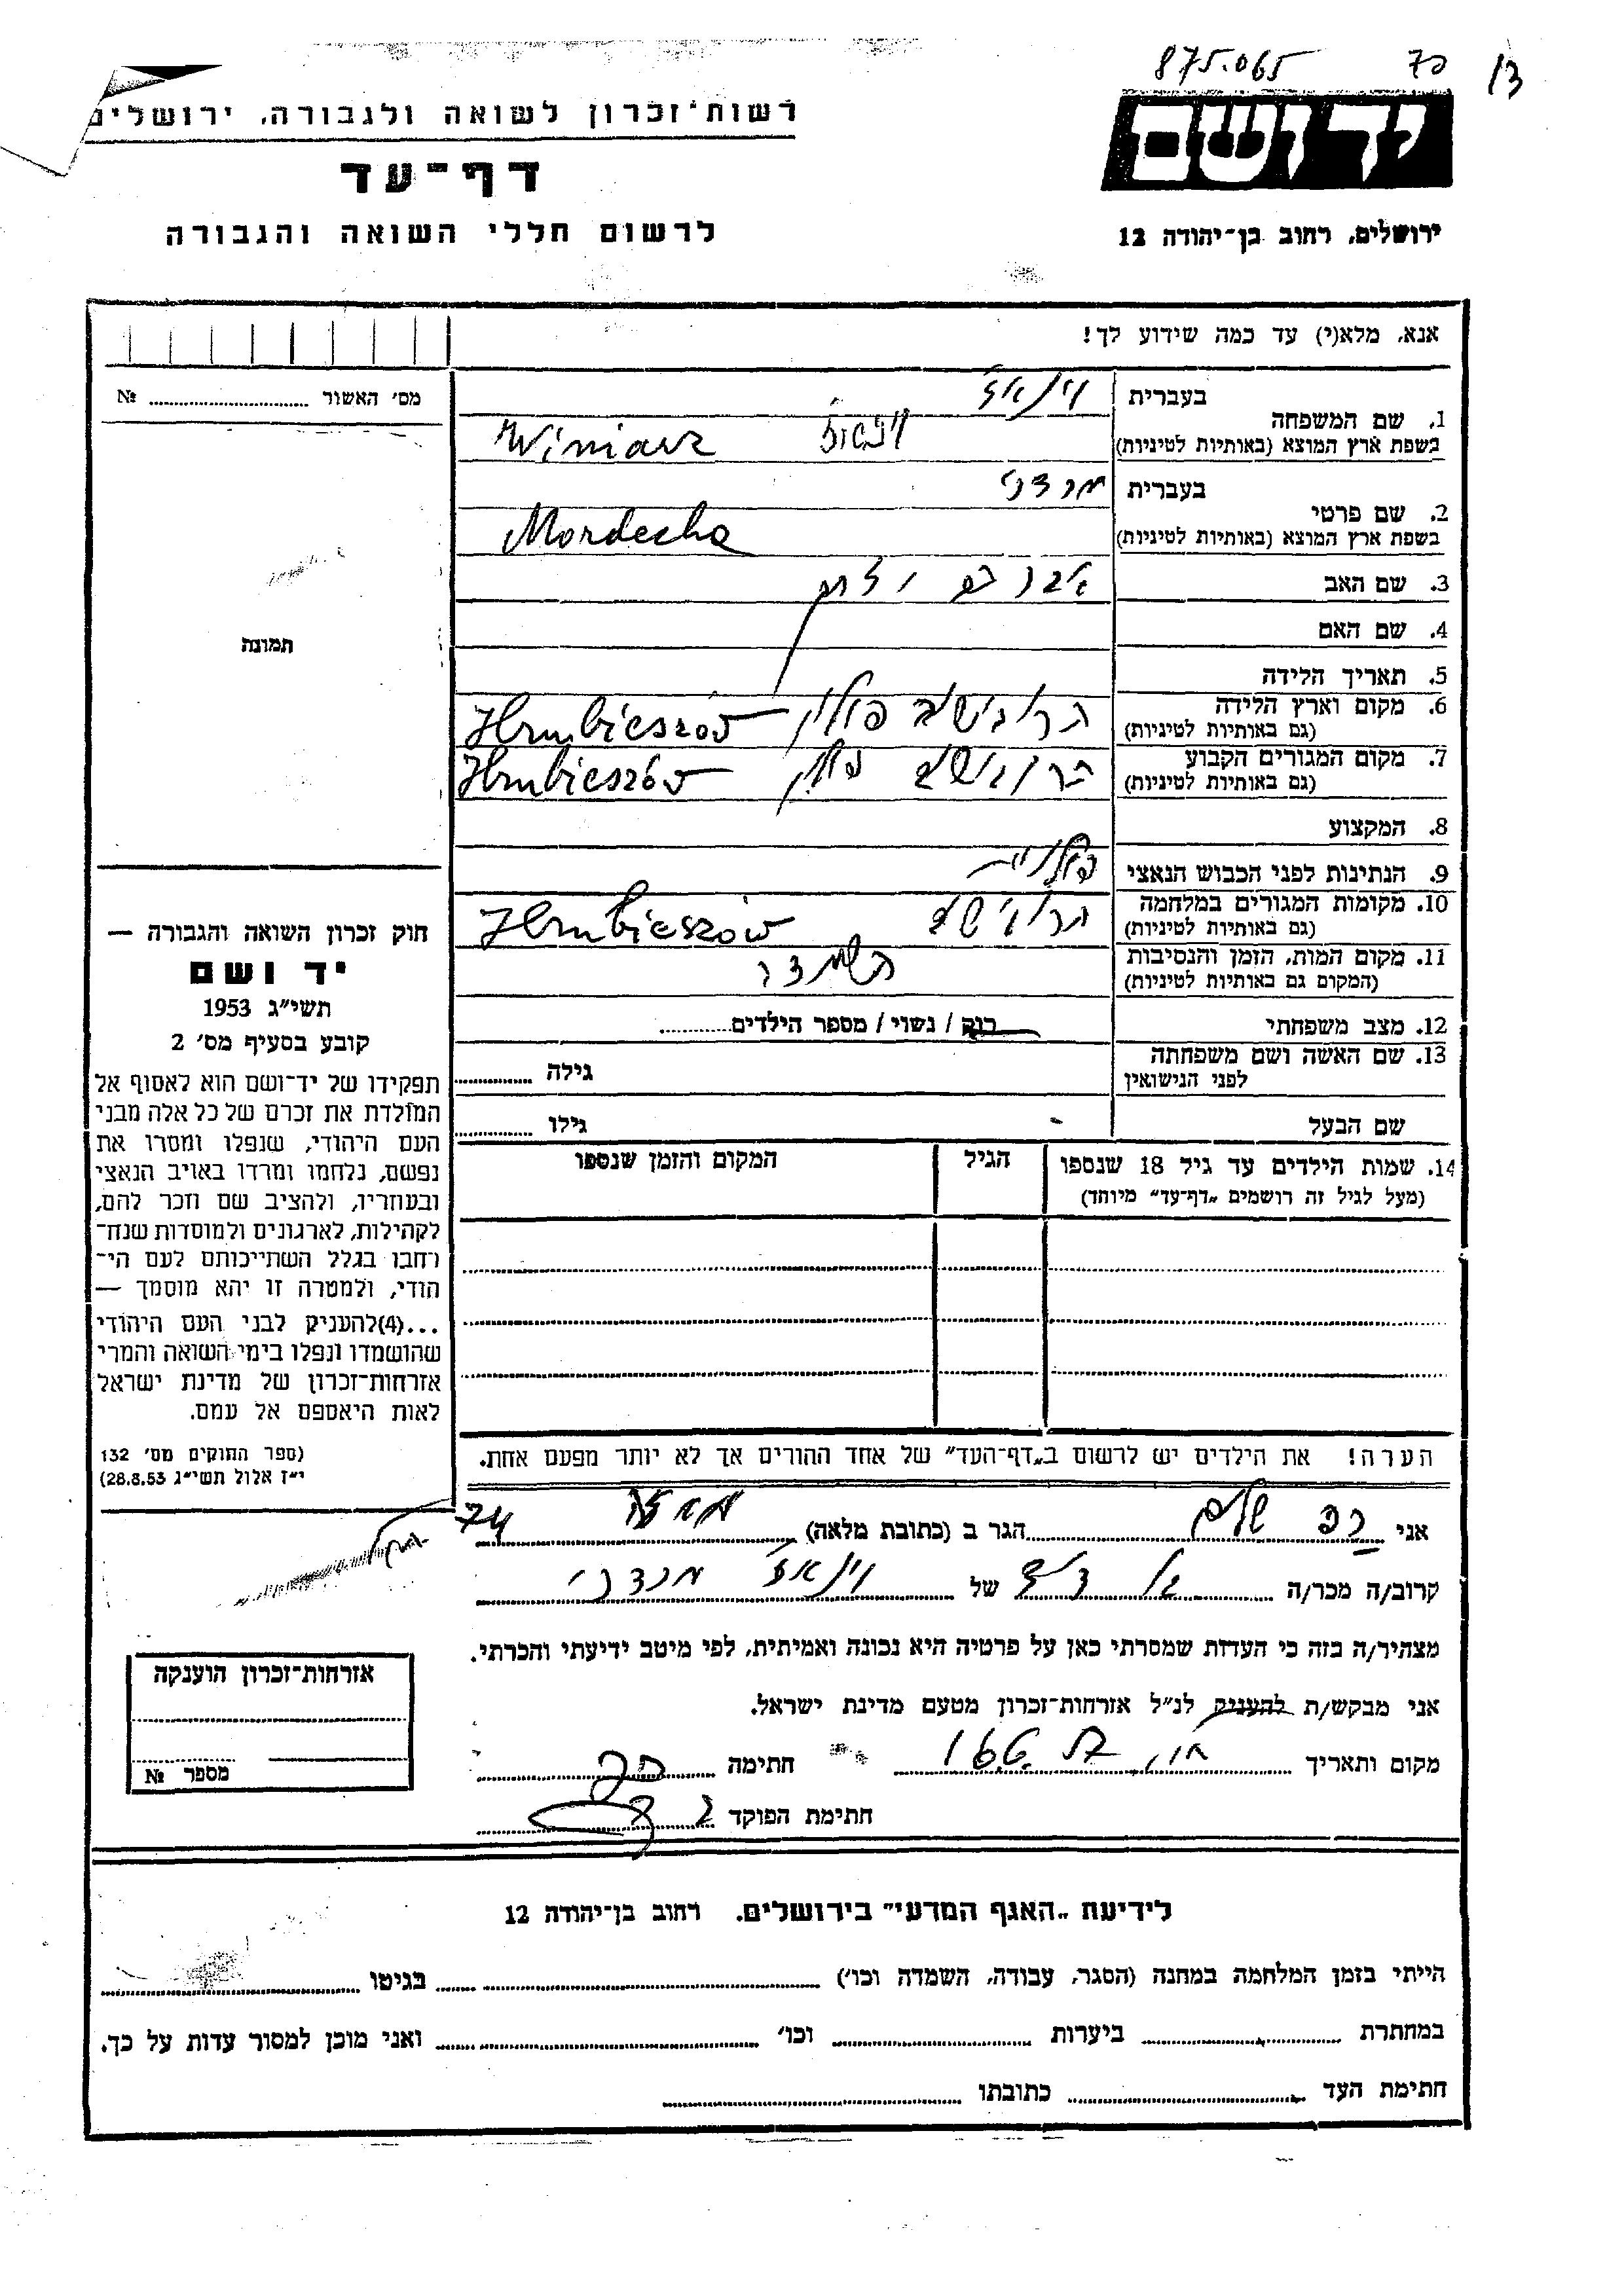 875.065
רשות־זכרון לשואה ולגבורה, ירושלים
דף־עד
לרשום חללי השואה והגבורה
יד ושם
ירושלים, רחוב בן־יהודה 12
אנא, מלא(י) עד כמה שידוע לך!
מס׳ האשור №
תמונה
1. שם המשפחה בעברית
בשפת ארץ המוצא (באותיות לטיניות) Winiarz
2. שם פרטי בעברית מרדכי
בשפת ארץ המוצא (באותיות לטיניות) Mordecha
3. שם האב
4. שם האם
5. תאריך הלידה
6. מקום וארץ הלידה הרובישוב פולין Hrubieszów
(גם באותיות לטיניות)
7. מקום המגורים הקבוע הרובישוב פולין Hrubieszów
(גם באותיות לטיניות)
8. המקצוע
9. הנתינות לפני הכבוש הנאצי פולנית
10. מקומות המגורים במלחמה הרובישוב Hrubieszów
(גם באותיות לטיניות)
11. מקום המות, הזמן והנסיבות
(המקום גם באותיות לטיניות)
12. מצב משפחתי רווק / נשוי / מספר הילדים
13. שם האשה ושם משפחתה
לפני הנישואין גילה
שם הבעל גילו
14. שמות הילדים עד גיל 18 שנספו הגיל המקום והזמן שנספו
(מעל לגיל זה רושמים „דף־עד״ מיוחד)
הערה! את הילדים יש לרשום ב„דף־העד״ של אחד ההורים אך לא יותר מפעם אחת.
חוק זכרון השואה והגבורה —
יד ושם
תשי״ג 1953
קובע בסעיף מס׳ 2
תפקידו של יד־ושם הוא לאסוף אל
המולדת את זכרם של כל אלה מבני
העם היהודי, שנפלו ומסרו את
נפשם, נלחמו ומרדו באויב הנאצי
ובעוזריו, ולהציב שם וזכר להם,
לקהילות, לארגונים ולמוסדות שנח־
רחבו בגלל השתייכותם לעם הי־
הודי, ולמטרה זו יהא מוסמך —
...(4)להעניק לבני העם היהודי
שהושמדו ונפלו בימי השואה והמרי
אזרחות־זכרון של מדינת ישראל
לאות היאספם אל עמם.
(ספר החוקים מס׳ 132
י״ז אלול תשי״ג 28.8.53)
אני הגר ב (כתובת מלאה)
קרוב/ה מכר/ה של מרדכי
מצהיר/ה בזה כי העדות שמסרתי כאן על פרטיה היא נכונה ואמיתית, לפי מיטב ידיעתי והכרתי.
אני מבקש/ת להעניק לנ״ל אזרחות־זכרון מטעם מדינת ישראל.
מקום ותאריך חתימה
חתימת הפוקד
אזרחות־זכרון הוענקה
מספר №
לידיעת „האגף המדעי״ בירושלים, רחוב בן־יהודה 12
הייתי בזמן המלחמה במחנה (הסגר, עבודה, השמדה וכו׳) בגיטו
במחתרת ביערות וכו׳ ואני מוכן למסור עדות על כך.
חתימת העד כתובתו